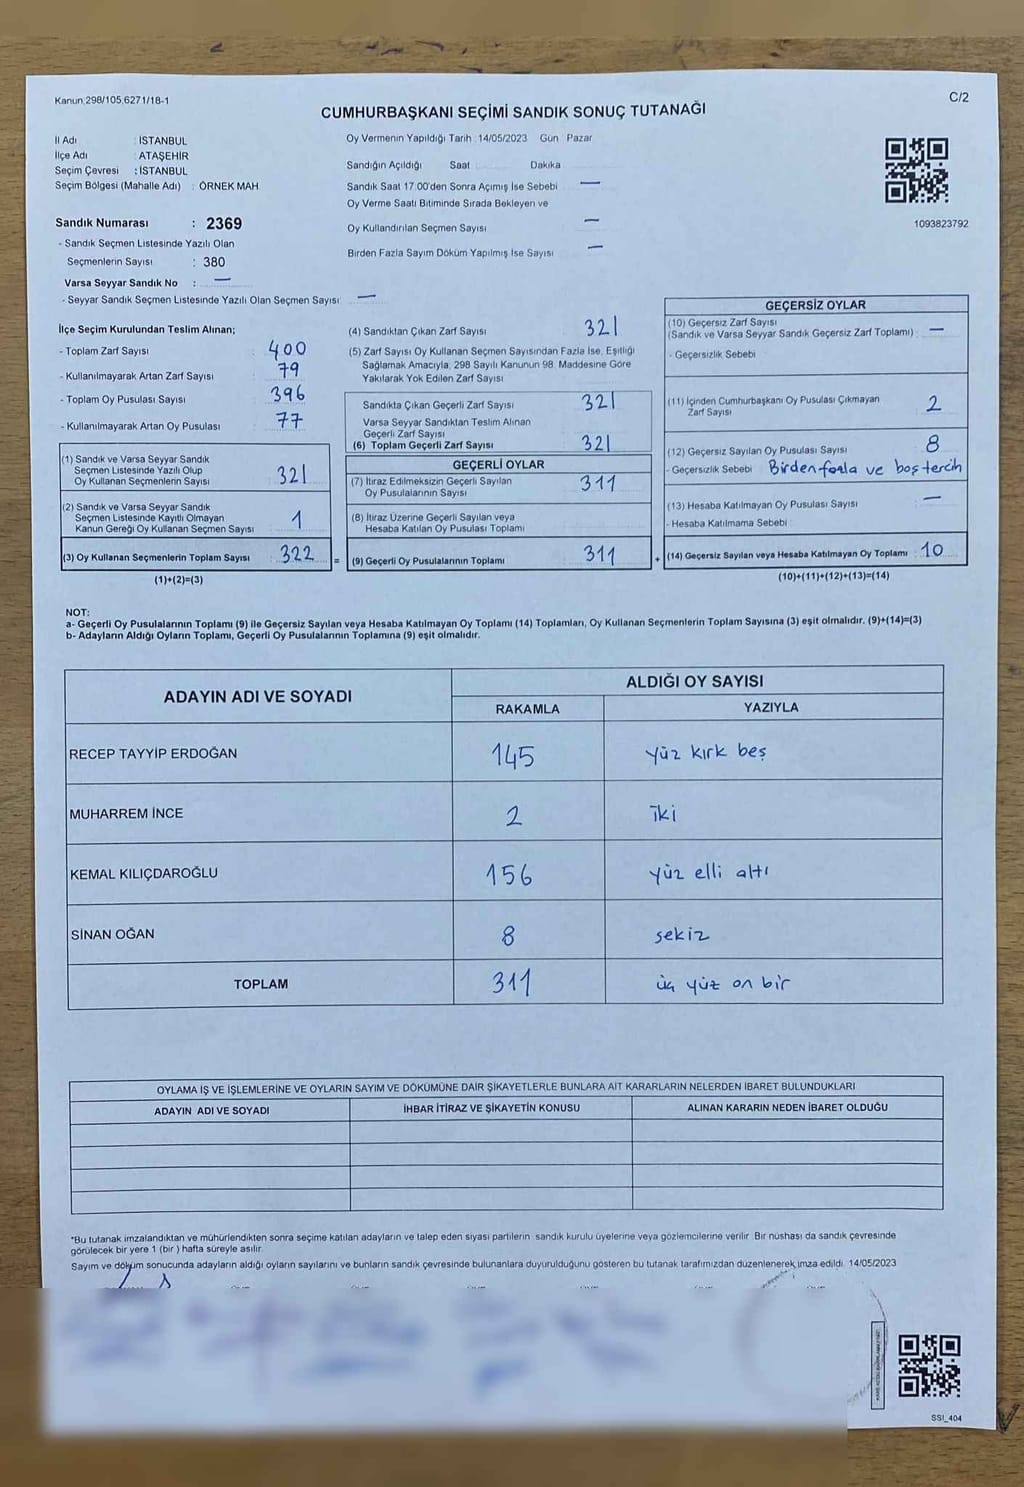 Kanun.298/105,6271/18-1
C/2
CUMHURBAŞKANI SEÇİMİ SANDIK SONUÇ TUTANAĞI
İl Adı : İSTANBUL
İlçe Adı : ATAŞEHİR
Seçim Çevresi : İSTANBUL
Seçim Bölgesi (Mahalle Adı) : ÖRNEK MAH.
Sandık Numarası : 2369
- Sandık Seçmen Listesinde Yazılı Olan
Seçmenlerin Sayısı : 380
Varsa Seyyar Sandık No : —
- Seyyar Sandık Seçmen Listesinde Yazılı Olan Seçmen Sayısı: —
Oy Vermenin Yapıldığı Tarih : 14/05/2023 Gün Pazar
Sandığın Açıldığı Saat Dakika
Sandık Saat 17.00'den Sonra Açımış İse Sebebi —
Oy Verme Saati Bitiminde Sırada Bekleyen ve
Oy Kullandırılan Seçmen Sayısı —
Birden Fazla Sayım Döküm Yapılmış İse Sayısı —
1093823792
İlçe Seçim Kurulundan Teslim Alınan;
- Toplam Zarf Sayısı : 400
- Kullanılmayarak Artan Zarf Sayısı : 79
- Toplam Oy Pusulası Sayısı : 396
- Kullanılmayarak Artan Oy Pusulası : 77
(1) Sandık ve Varsa Seyyar Sandık
Seçmen Listesinde Yazılı Olup
Oy Kullanan Seçmenlerin Sayısı 321
(2) Sandık ve Varsa Seyyar Sandık
Seçmen Listesinde Kayıtlı Olmayan
Kanun Gereği Oy Kullanan Seçmen Sayısı 1
(3) Oy Kullanan Seçmenlerin Toplam Sayısı 322 =
(1)+(2)=(3)
(4) Sandıktan Çıkan Zarf Sayısı 321
(5) Zarf Sayısı Oy Kullanan Seçmen Sayısından Fazla İse, Eşitliği
Sağlamak Amacıyla, 298 Sayılı Kanunun 98. Maddesine Göre
Yakılarak Yok Edilen Zarf Sayısı
Sandıkta Çıkan Geçerli Zarf Sayısı 321
Varsa Seyyar Sandıktan Teslim Alınan
Geçerli Zarf Sayısı
(6) Toplam Geçerli Zarf Sayısı 321
GEÇERLİ OYLAR
(7) İtiraz Edilmeksizin Geçerli Sayılan
Oy Pusulalarının Sayısı 311
(8) İtiraz Üzerine Geçerli Sayılan veya
Hesaba Katılan Oy Pusulası Toplamı
(9) Geçerli Oy Pusulalarının Toplamı 311 +
GEÇERSİZ OYLAR
(10) Geçersiz Zarf Sayısı
(Sandık ve Varsa Seyyar Sandık Geçersiz Zarf Toplamı) : —
- Geçersizlik Sebebi
(11) İçinden Cumhurbaşkanı Oy Pusulası Çıkmayan
Zarf Sayısı 2
(12) Geçersiz Sayılan Oy Pusulası Sayısı 8
- Geçersizlik Sebebi Birden fazla ve boş tercih
(13) Hesaba Katılmayan Oy Pusulası Sayısı —
- Hesaba Katılmama Sebebi
(14) Geçersiz Sayılan veya Hesaba Katılmayan Oy Toplamı : 10
(10)+(11)+(12)+(13)=(14)
NOT:
a- Geçerli Oy Pusulalarının Toplamı (9) ile Geçersiz Sayılan veya Hesaba Katılmayan Oy Toplamı (14) Toplamları, Oy Kullanan Seçmenlerin Toplam Sayısına (3) eşit olmalıdır. (9)+(14)=(3)
b- Adayların Aldığı Oyların Toplamı, Geçerli Oy Pusulalarının Toplamına (9) eşit olmalıdır.
ADAYIN ADI VE SOYADI
ALDIĞI OY SAYISI
RAKAMLA YAZIYLA
RECEP TAYYİP ERDOĞAN 145 yüz kırk beş
MUHARREM İNCE 2 iki
KEMAL KILIÇDAROĞLU 156 yüz elli altı
SİNAN OĞAN 8 sekiz
TOPLAM 311 üç yüz on bir
OYLAMA İŞ VE İŞLEMLERİNE VE OYLARIN SAYIM VE DÖKÜMÜNE DAİR ŞİKAYETLERLE BUNLARA AİT KARARLARIN NELERDEN İBARET BULUNDUKLARI
ADAYIN ADI VE SOYADI İHBAR İTİRAZ VE ŞİKAYETİN KONUSU ALINAN KARARIN NEDEN İBARET OLDUĞU
*Bu tutanak imzalandıktan ve mühürlendikten sonra seçime katılan adayların ve talep eden siyasi partilerin sandık kurulu üyelerine veya gözlemcilerine verilir. Bir nüshası da sandık çevresinde
görülecek bir yere 1 (bir) hafta süreyle asılır.
Sayım ve döküm sonucunda adayların aldığı oyların sayılarını ve bunların sandık çevresinde bulunanlara duyurulduğunu gösteren bu tutanak tarafımızdan düzenlenerek imza edildi. 14/05/2023
SSI_404